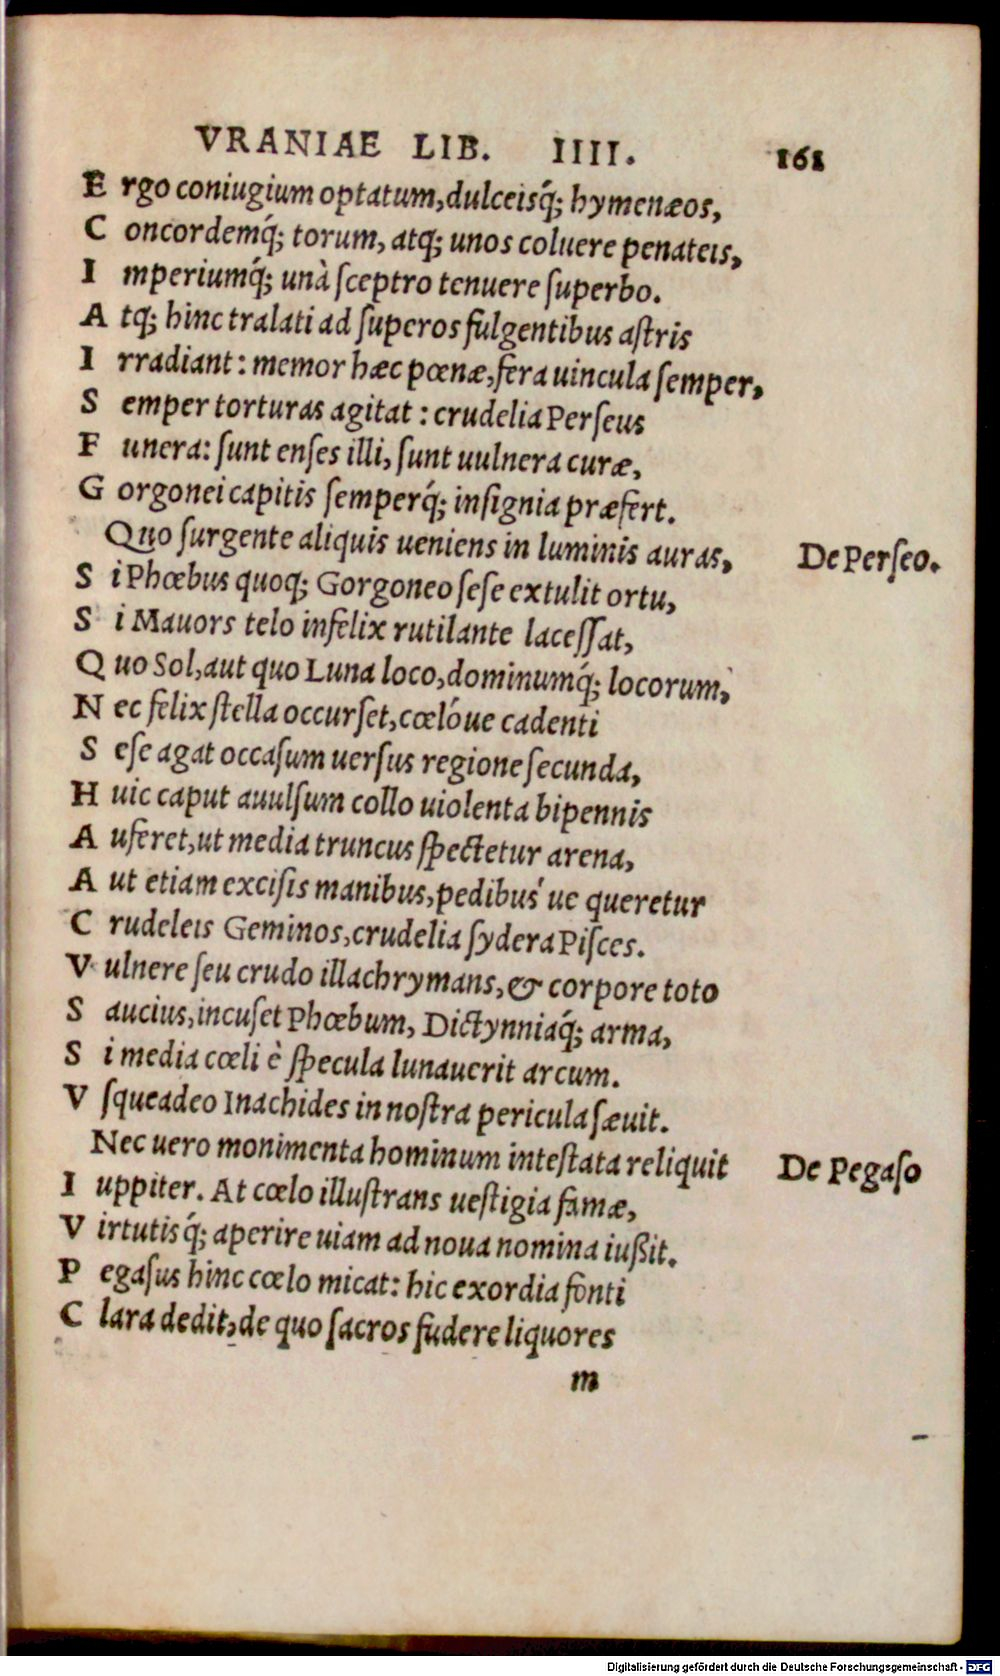 VRANIAE LIB. IIII. 161
E rgo coniugium optatum, dulceisq́; hymenæos,
C oncordemq́; torum, atq; unos coluere penateis,
I mperiumq́; unà ſceptro tenuere ſuperbo.
A tq; hinc tralati ad ſuperos fulgentibus aſtris
I rradiant: memor hæc pœnæ, fera uincula ſemper,
S emper torturas agitat: crudelia Perſeus
F unera: ſunt enſes illi, ſunt uulnera curæ,
G orgonei capitis ſemperq́; inſignia præfert.
Quo ſurgente aliquis ueniens in luminis auras, De Perſeo.
S i Phœbus quoq; Gorgoneo ſeſe extulit ortu,
S i Mauors telo infelix rutilante laceſſat,
Q uo Sol, aut quo Luna loco, dominumq́; locorum,
N ec felix ſtella occurſet, cœlóue cadenti
S eſe agat occaſum uerſus regione ſecunda,
H uic caput auulſum collo uiolenta bipennis
A uferet, ut media truncus ſpectetur arena,
A ut etiam exciſis manibus, pedibus´ue queretur
C rudeleis Geminos, crudelia ſydera Piſces.
V ulnere ſeu crudo illachrymans, & corpore toto
S aucius, incuſet Phœbum, Dictynniaq́; arma,
S i media cœli è ſpecula lunauerit arcum.
V ſqueadeo Inachides in noſtra pericula ſæuit.
Nec uero monimenta hominum inteſtata reliquit De Pegaſo
I uppiter. At cœlo illuſtrans ueſtigia famæ,
V irtutisq́; aperire uiam ad noua nomina iußit.
P egaſus hinc cœlo micat: hic exordia fonti
C lara dedit, de quo ſacros fudere liquores
m
Digitalisierung gefördert durch die Deutsche Forschungsgemeinschaft - DFG